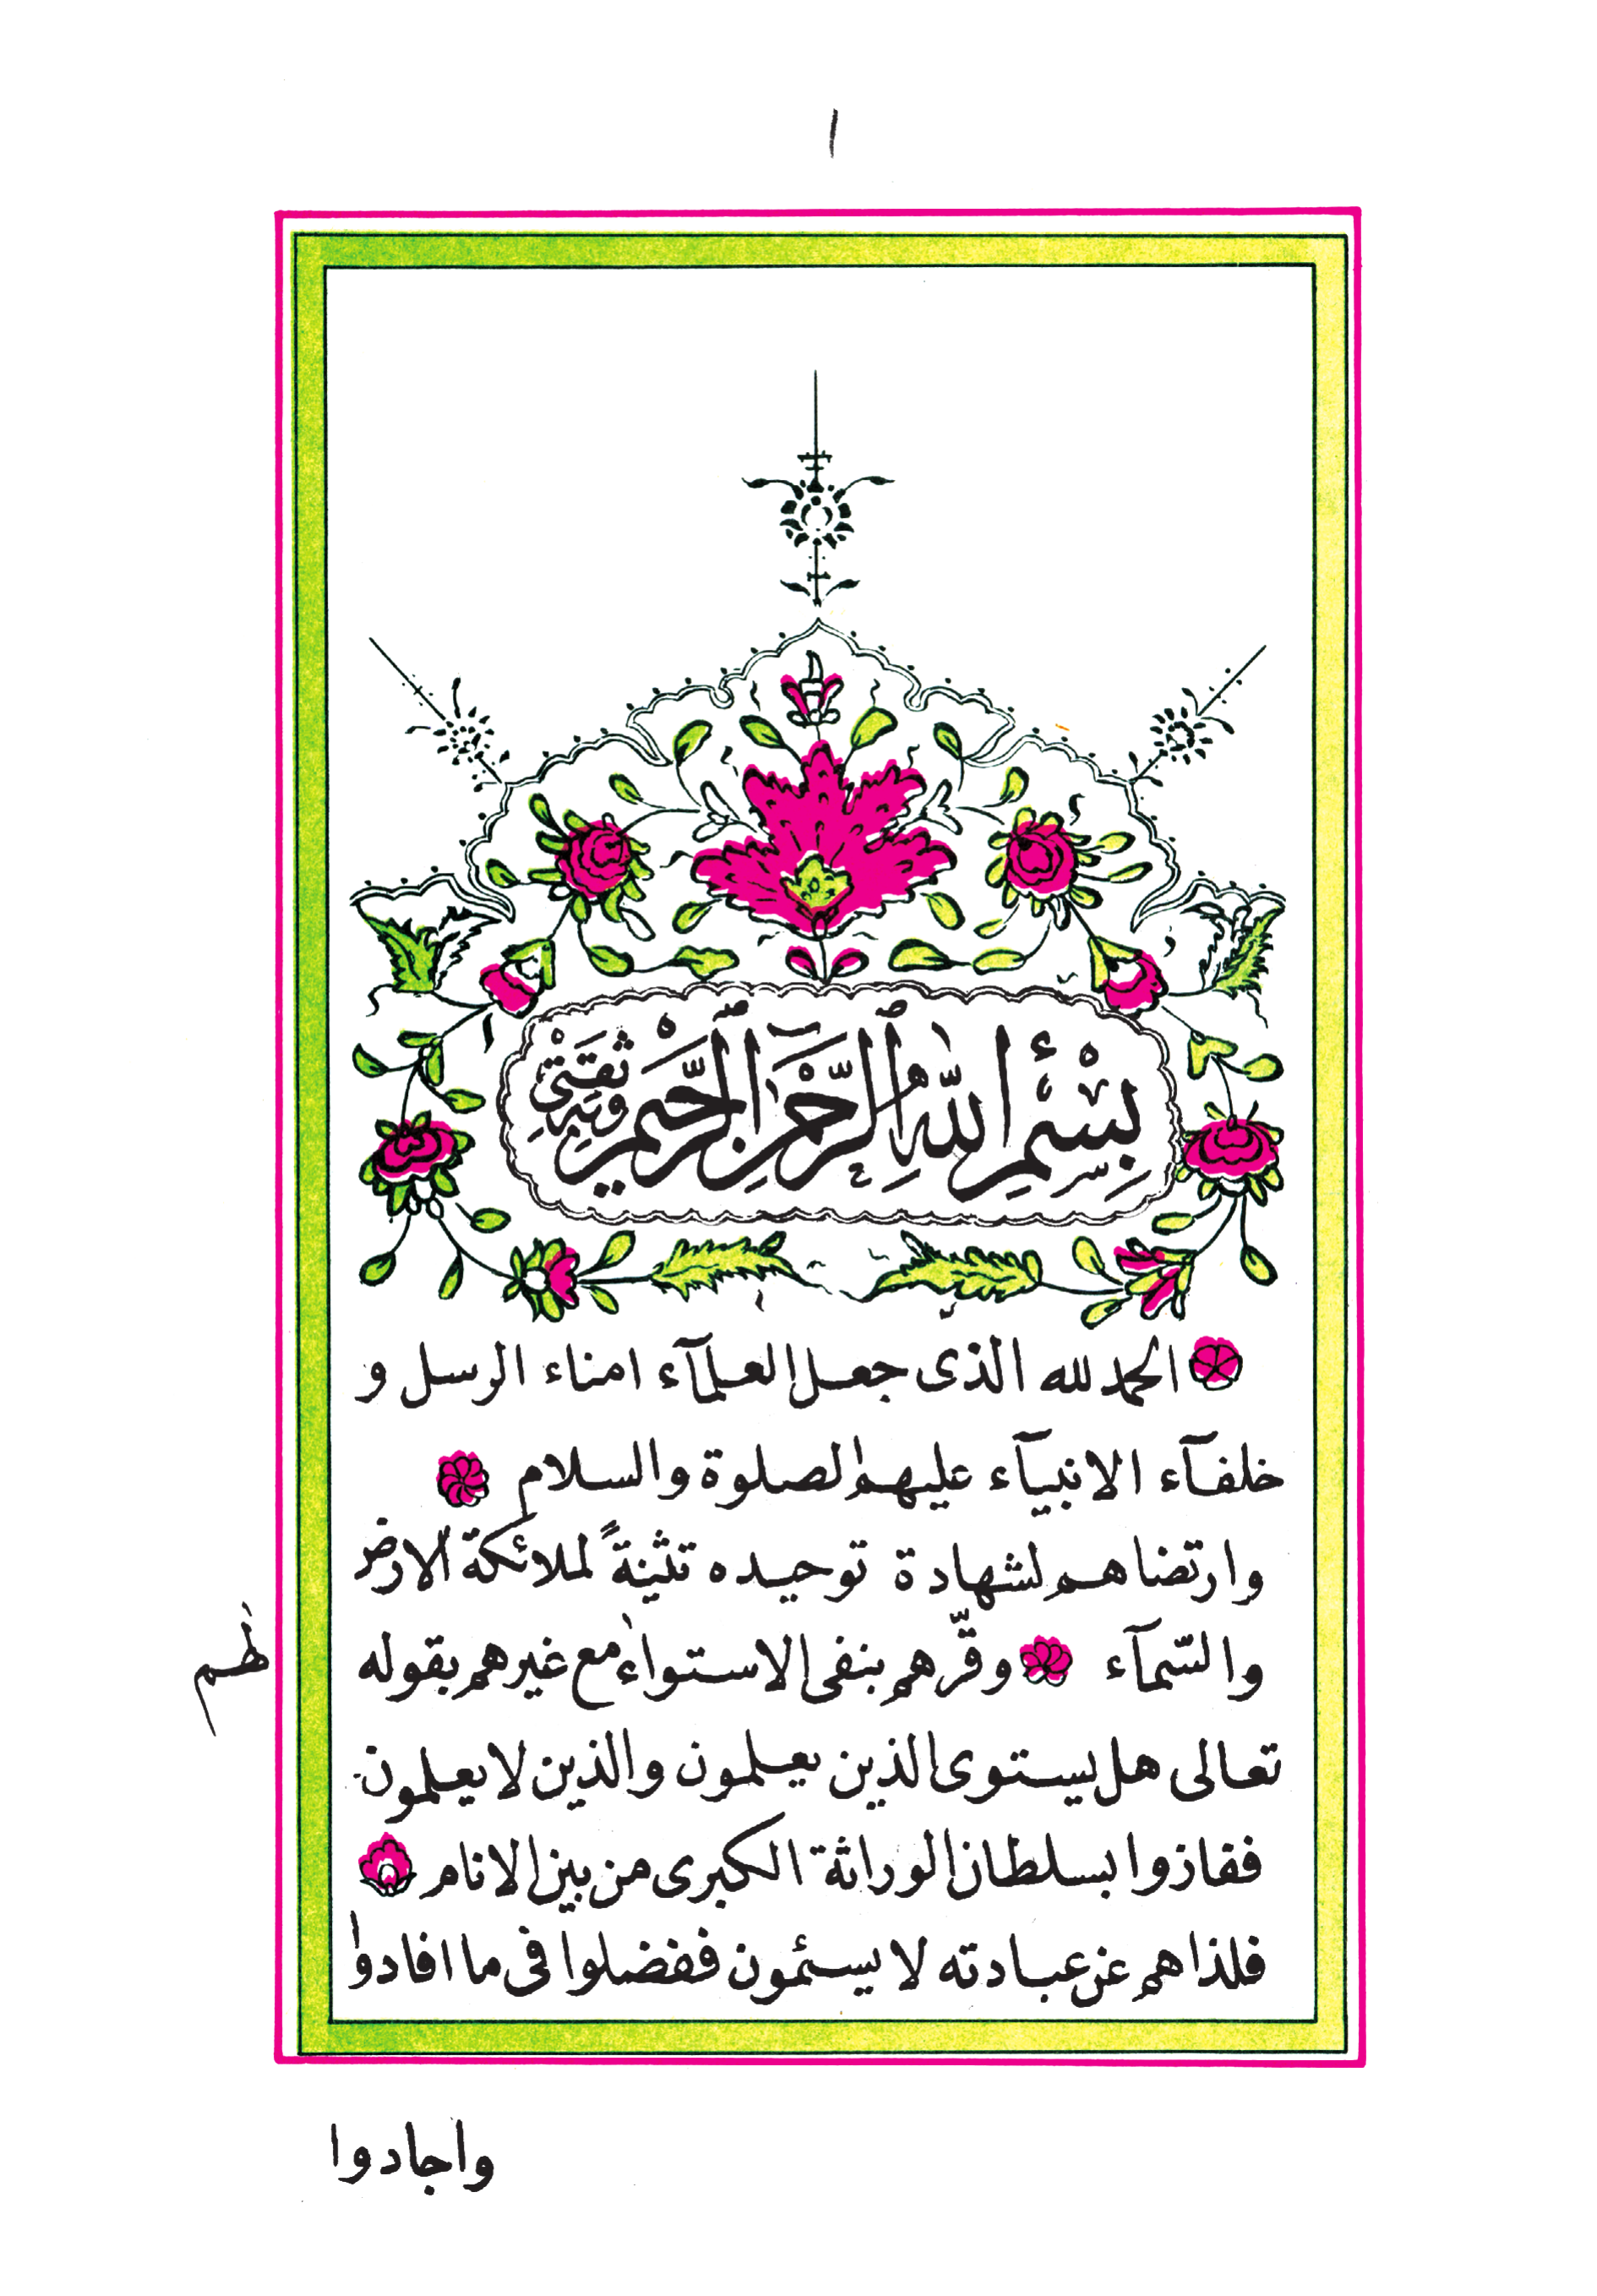 ١
بِسْمِ اللهِ الرَّحْمٰنِ الرَّحِيمِ وَبِهِ ثِقَتِى
الحمد لله الذى جعل العلمآء امناء الرسل و
خلفآء الانبيآء عليهم الصلوة والسلام
وارتضاهم لشهادة توحيده تثنيةً لملائكة الارض
والسّمآء وقرّهم بنفى الاستواء مع غيرهم بقوله
لهم
تعالى هل يستوى الذين يعلمون والذين لا يعلمون
ففازوا بسلطان الوراثة الكبرى من بين الانام
فلذا هم عن عبادته لا يسئمون ففضلوا فى ما افادوا
واجادوا